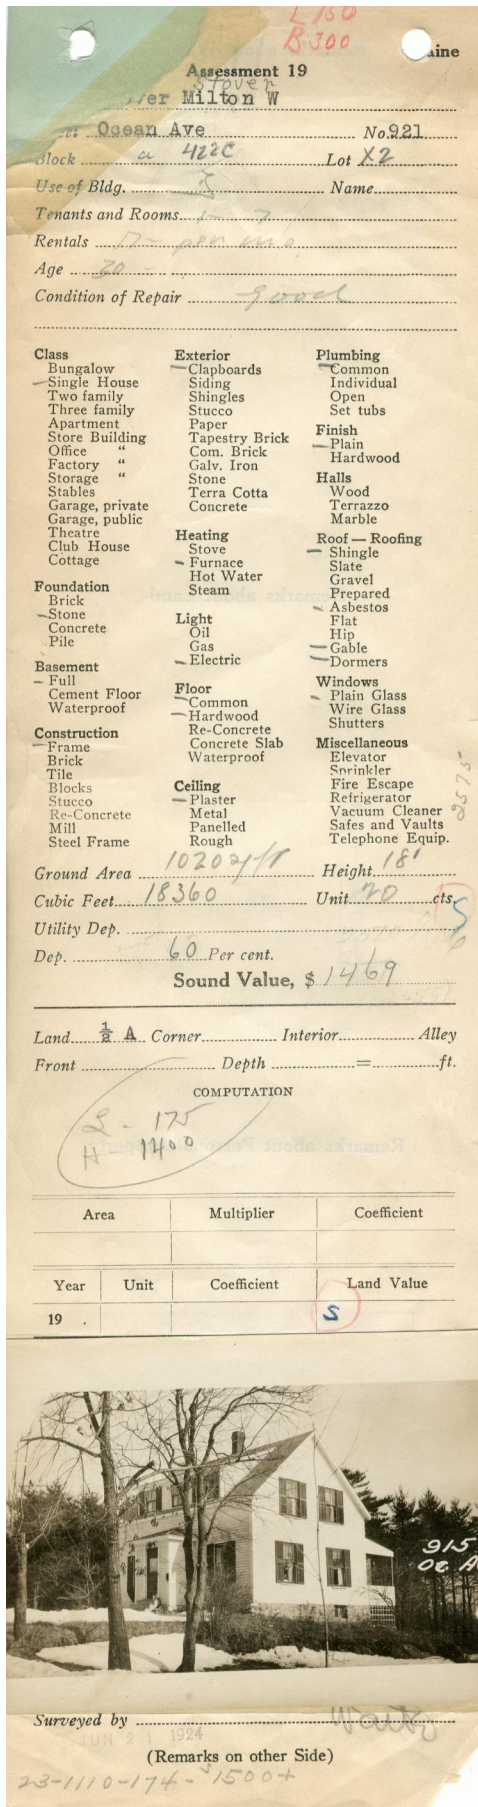 L 150
B 300
aine
Assessment 19
Stover
ver Milton W
et Ocean Ave No. 921
Block a 422C Lot X2
Use of Bldg. Name
Tenants and Rooms 1 - 7
Rentals per mo
Age 30 -
Condition of Repair good
Class
Bungalow
Single House
Two family
Three family
Apartment
Store Building
Office "
Factory "
Storage "
Stables
Garage, private
Garage, public
Theatre
Club House
Cottage
Foundation
Brick
Stone
Concrete
Pile
Basement
Full
Cement Floor
Waterproof
Construction
Frame
Brick
Tile
Blocks
Stucco
Re-Concrete
Mill
Steel Frame
Exterior
Clapboards
Siding
Shingles
Stucco
Paper
Tapestry Brick
Com. Brick
Galv. Iron
Stone
Terra Cotta
Concrete
Heating
Stove
Furnace
Hot Water
Steam
Light
Oil
Gas
Electric
Floor
Common
Hardwood
Re-Concrete
Concrete Slab
Waterproof
Ceiling
Plaster
Metal
Panelled
Rough
Plumbing
Common
Individual
Open
Set tubs
Finish
Plain
Hardwood
Halls
Wood
Terrazzo
Marble
Roof — Roofing
Shingle
Slate
Gravel
Prepared
Asbestos
Flat
Hip
Gable
Dormers
Windows
Plain Glass
Wire Glass
Shutters
Miscellaneous
Elevator
Sprinkler
Fire Escape
Refrigerator
Vacuum Cleaner
Safes and Vaults
Telephone Equip.
2575
Ground Area 1020 Height 18'
Cubic Feet 18360 Unit 20 cts.
S
Utility Dep.
Dep. 60 Per cent.
Sound Value, $ 1469
Land ½ A Corner Interior Alley
Front Depth = ft.
COMPUTATION
L - 175
H - 1400
Area Multiplier Coefficient
Year Unit Coefficient Land Value
19 . S
915
Oc A
Surveyed by
JUN 21 1924
(Remarks on other Side)
23-1110-174-$1500+